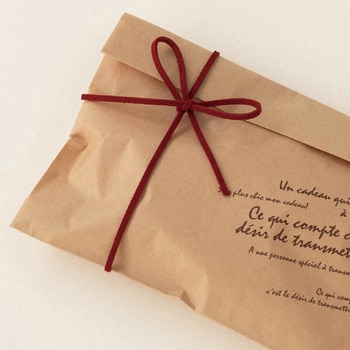 Un cadeau qui
à
plus chic mon cadeau!
Ce qui compte c
désir de transmet
A une personne spécial à transm
Ce qui comp
c'est le désir de transmettre